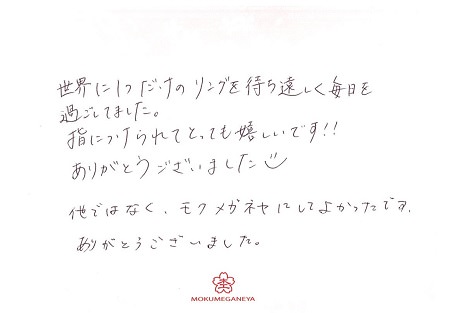 世界に1つだけのリングを待ち遠しく毎日を
過ごしてました。
指につけられてとっても嬉しいです!!
ありがとうございました
他ではなく、モクメガネヤにしてよかったです.
ありがとうございました。
MOKUMEGANEYA